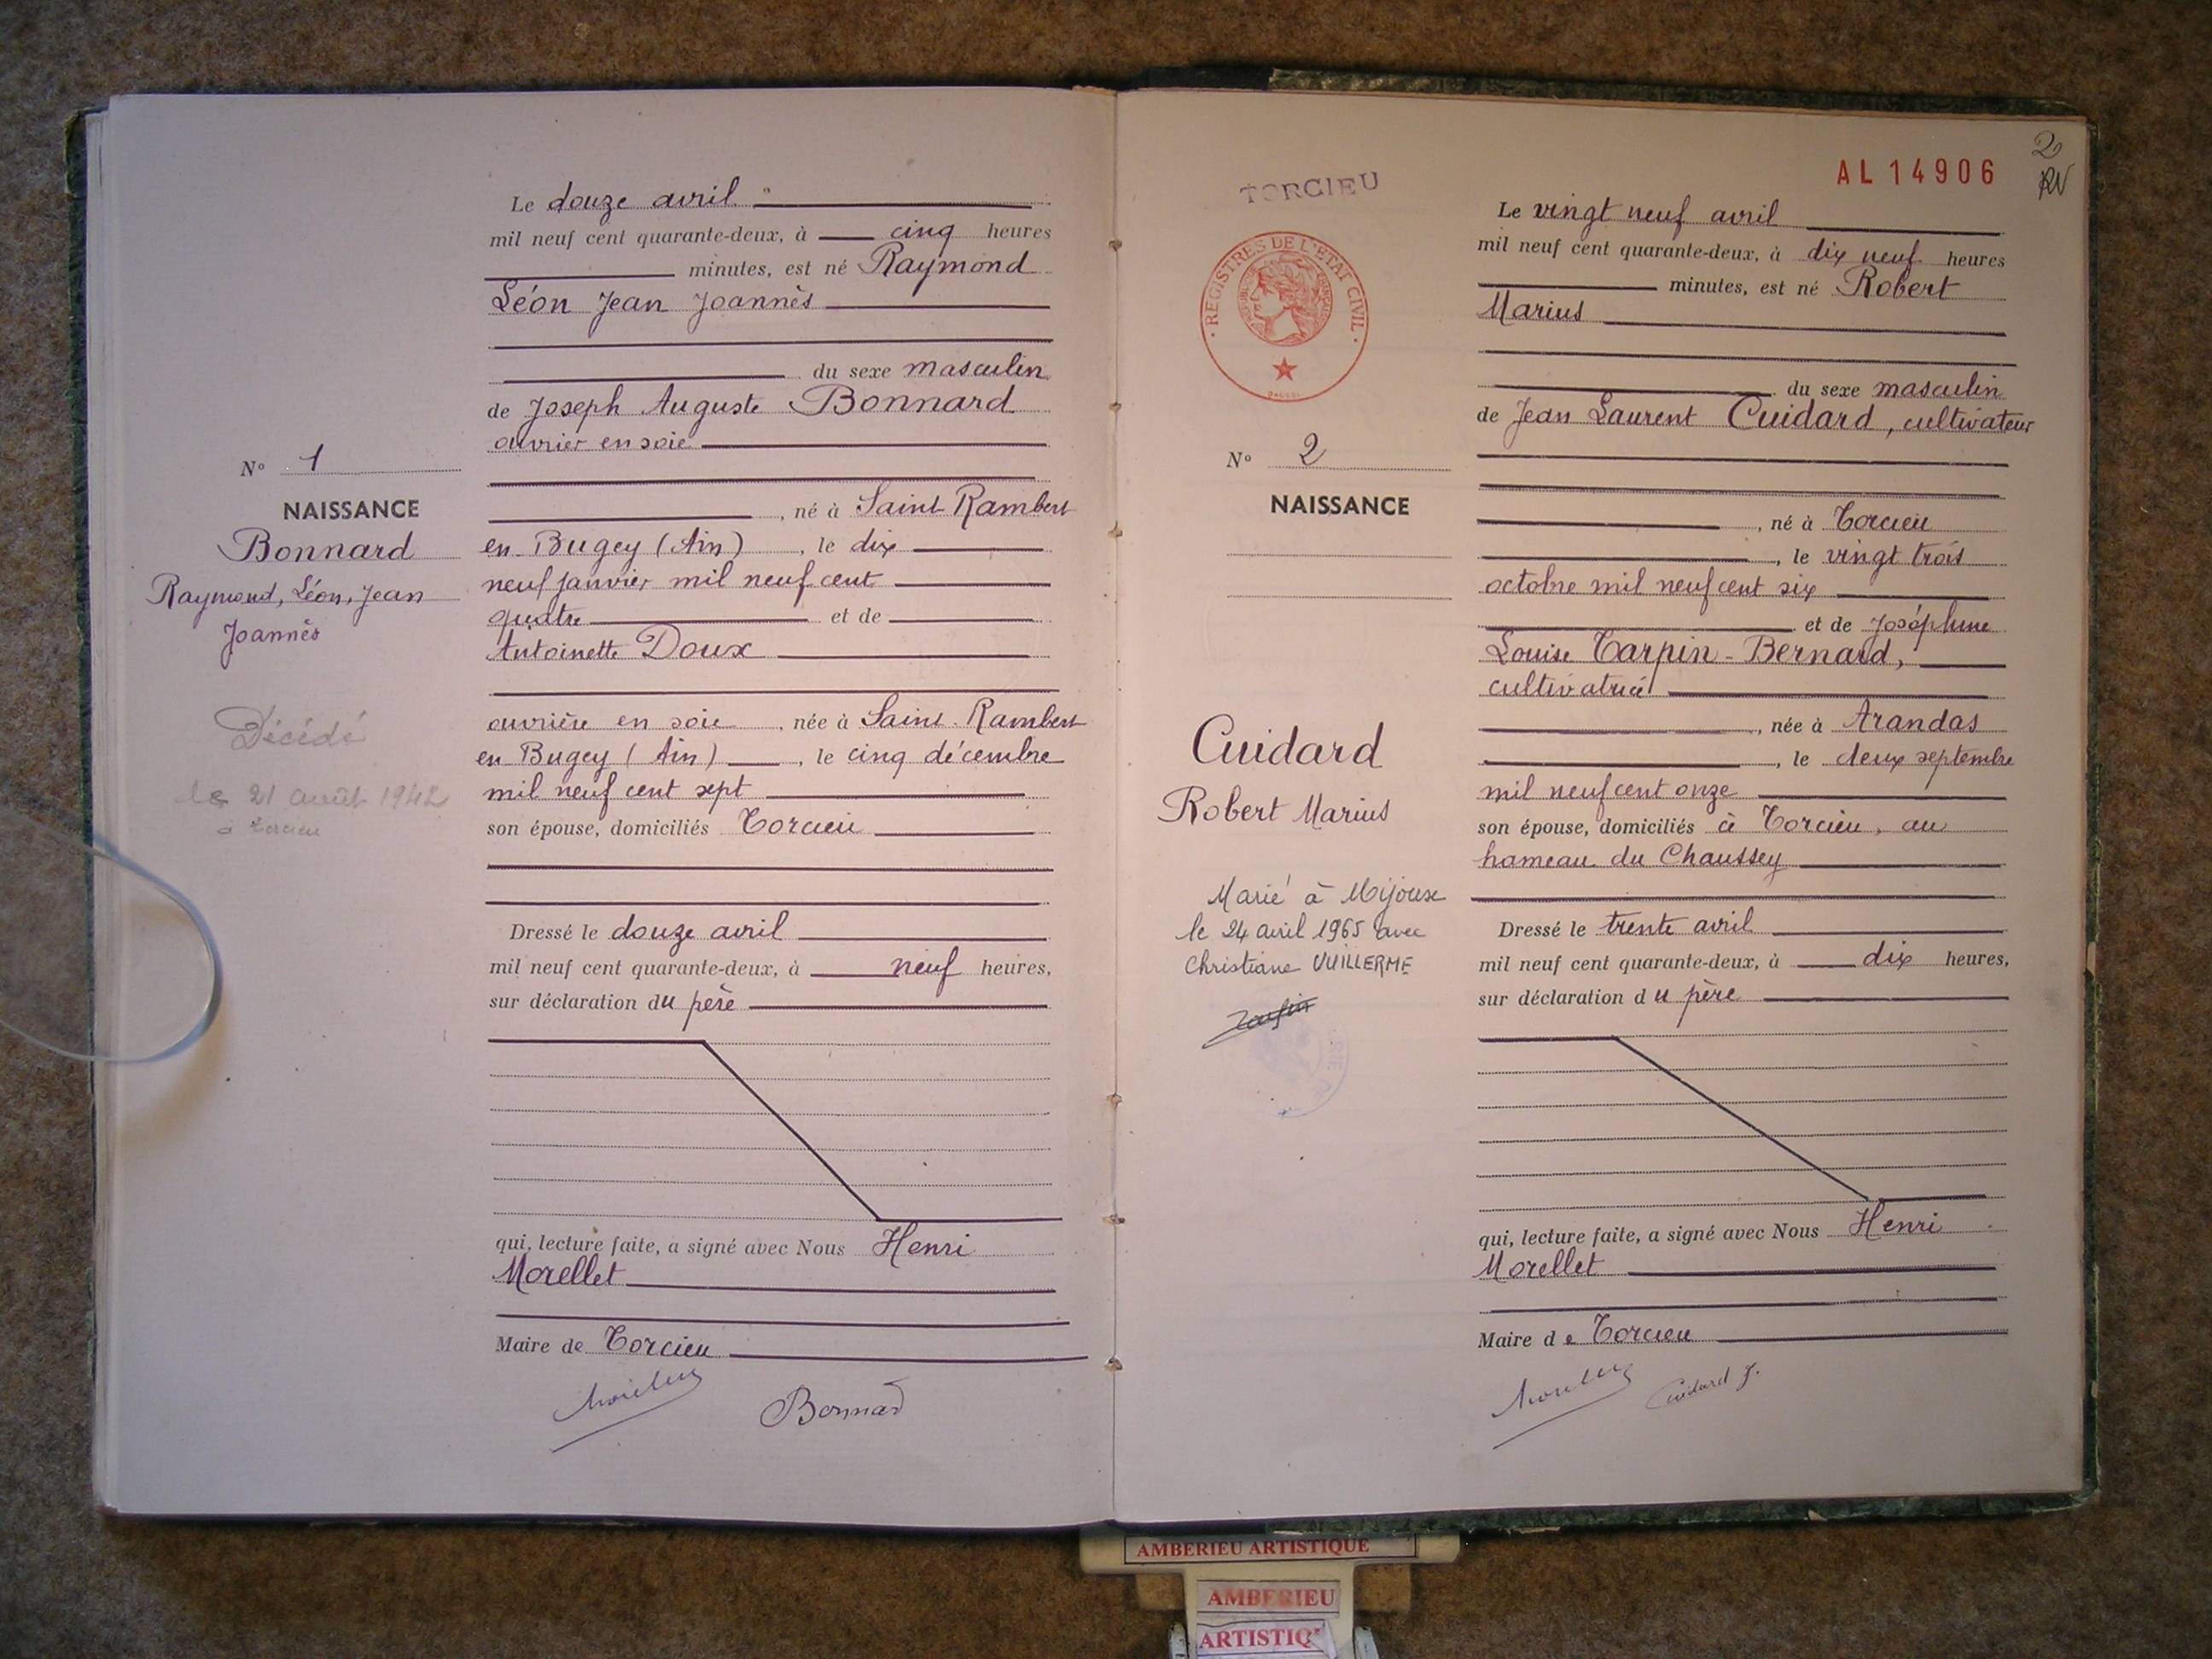 Le douze avril
mil neuf cent quarante-deux, à cinq heures
minutes, est né Raymond
Léon Jean Joannès
du sexe masculin
de Joseph Auguste Bonnard
ouvrier en soie
, né à Saint Rambert
en Bugey (Ain), le dix
neuf janvier mil neuf cent
quatre et de
Antoinette Doux
ouvrière en soie, née à Saint-Rambert
en Bugey (Ain), le cinq décembre
mil neuf cent sept
son épouse, domiciliés Torcieu
Dressé le douze avril
mil neuf cent quarante-deux, à neuf heures,
sur déclaration du père
qui, lecture faite, a signé avec Nous Henri
Morellet
Maire de Torcieu
Bonnard
No 1
NAISSANCE
Bonnard
Raymond, Léon, Jean
Joannès
Décédé
le 21 août 1942
à Torcieu
TORCIEU
REGISTRES DE L'ETAT CIVIL
No 2
NAISSANCE
Cuidard
Robert Marius
Marié à Mijoux
le 24 avril 1965 avec
Christiane VUILLERME
2
AL 14906
RN
Le vingt neuf avril
mil neuf cent quarante-deux, à dix neuf heures
minutes, est né Robert
Marius
du sexe masculin
de Jean Laurent Cuidard, cultivateur
, né à Torcieu
, le vingt trois
octobre mil neuf cent six
et de Joséphine
Louise Tarpin-Bernard,
cultivatrice
, née à Arandas
, le deux septembre
mil neuf cent onze
son épouse, domiciliés à Torcieu, au
hameau du Chaussey
Dressé le trente avril
mil neuf cent quarante-deux, à dix heures,
sur déclaration du père
qui, lecture faite, a signé avec Nous Henri
Morellet
Maire de Torcieu
Cuidard J.
AMBERIEU ARTISTIQUE
AMBERIEU
ARTISTIQ